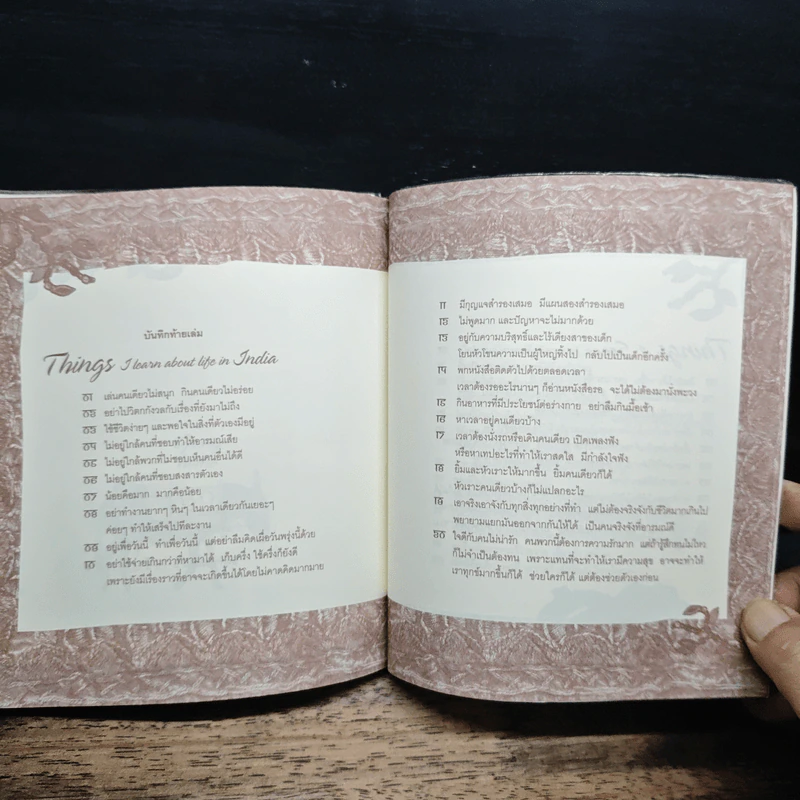 บันทึกท้ายเล่ม
Things I learn about life in India
๐๑ เล่นคนเดียวไม่สนุก กินคนเดียวไม่อร่อย
๐๒ อย่าไปวิตกกังวลกับเรื่องที่ยังมาไม่ถึง
๐๓ ใช้ชีวิตง่ายๆ และพอใจในสิ่งที่ตัวเองมีอยู่
๐๔ ไม่อยู่ใกล้คนที่ชอบทำให้อารมณ์เสีย
๐๕ ไม่อยู่ใกล้พวกที่ไม่ชอบเห็นคนอื่นได้ดี
๐๖ ไม่อยู่ใกล้คนที่ชอบสงสารตัวเอง
๐๗ น้อยคือมาก มากคือน้อย
๐๘ อย่าทำงานยากๆ หินๆ ในเวลาเดียวกันเยอะๆ
ค่อยๆ ทำให้เสร็จไปทีละงาน
๐๙ อยู่เพื่อวันนี้ ทำเพื่อวันนี้ แต่อย่าลืมคิดเผื่อวันพรุ่งนี้ด้วย
๑๐ อย่าใช้จ่ายเกินกว่าที่หามาได้ เก็บครึ่ง ใช้ครึ่งก็ยังดี
เพราะยังมีเรื่องราวที่อาจจะเกิดขึ้นได้โดยไม่คาดคิดมากมาย
๑๑ มีกุญแจสำรองเสมอ มีแผนสองสำรองเสมอ
๑๒ ไม่พูดมาก และปัญหาจะไม่มากด้วย
๑๓ อยู่กับความบริสุทธิ์และไร้เดียงสาของเด็ก
โยนหัวโขนความเป็นผู้ใหญ่ทิ้งไป กลับไปเป็นเด็กอีกครั้ง
๑๔ พกหนังสือติดตัวไปด้วยตลอดเวลา
เวลาต้องรออะไรนานๆ ก็อ่านหนังสือรอ จะได้ไม่ต้องมานั่งพะวง
๑๕ กินอาหารที่มีประโยชน์ต่อร่างกาย อย่าลืมกินมื้อเช้า
๑๖ หาเวลาอยู่คนเดียวบ้าง
๑๗ เวลาต้องนั่งรถหรือเดินคนเดียว เปิดเพลงฟัง
หรือหาเทปอะไรที่ทำให้เราสดใส มีกำลังใจฟัง
๑๘ ยิ้มและหัวเราะให้มากขึ้น ยิ้มคนเดียวก็ได้
หัวเราะคนเดียวบ้างก็ไม่แปลกอะไร
๑๙ เอาจริงเอาจังกับทุกสิ่งทุกอย่างที่ทำ แต่ไม่ต้องจริงจังกับชีวิตมากเกินไป
พยายามแยกมันออกจากกันให้ได้ เป็นคนจริงจังที่อารมณ์ดี
๒๐ ใจดีกับคนไม่น่ารัก คนพวกนี้ต้องการความรักมาก แต่ถ้ารู้สึกทนไม่ไหว
ก็ไม่จำเป็นต้องทน เพราะแทนที่จะทำให้เรามีความสุข อาจจะทำให้
เราทุกข์มากขึ้นก็ได้ ช่วยใครก็ได้ แต่ต้องช่วยตัวเองก่อน